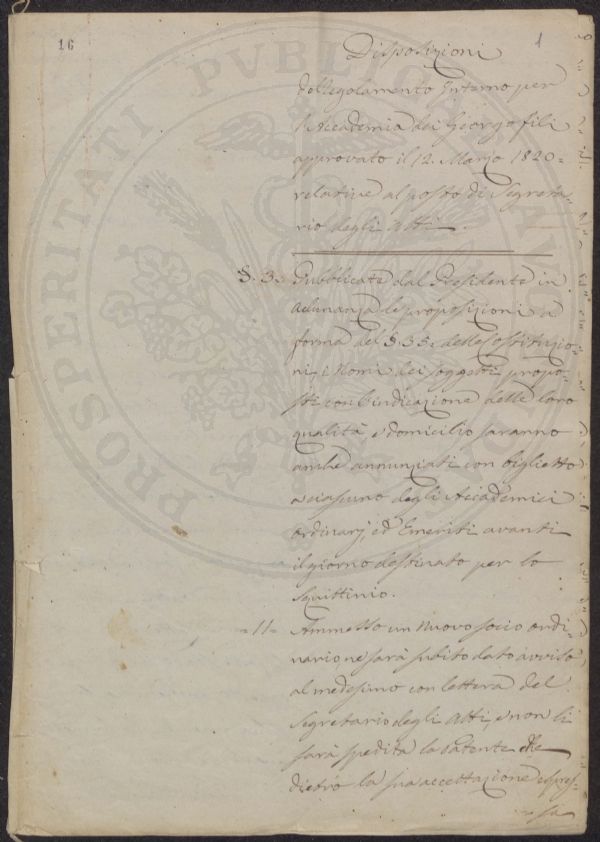 16
1
Disposizioni
del Regolamento Interno per
l'Accademia dei Georgofili
approvato il 12. Marzo 1820 =
relative al posto di Segreta-
rio degli Atti.
§. 3. Pubblicate dal Presidente in
Adunanza le proposizioni a
forma del §. 35. delle Costituzio-
ni, i Nomi dei soggetti propo-
sti con l'indicazione delle loro
qualità, e domicilio saranno
anche annunziati con biglietto
a ciascuno degli Accademici
Ordinarj, ed Emeriti avanti
il giorno destinato per lo
Squittinio.
- 11 - Ammesso un Nuovo socio ordi-
nario, ne sarà subito dato avviso
al medesimo con lettera del
Segretario degli Atti, e non li
sarà spedita la Patente che
dietro la sua accettazione espres-
sa
PROSPERITATI PVBLICAE AVG